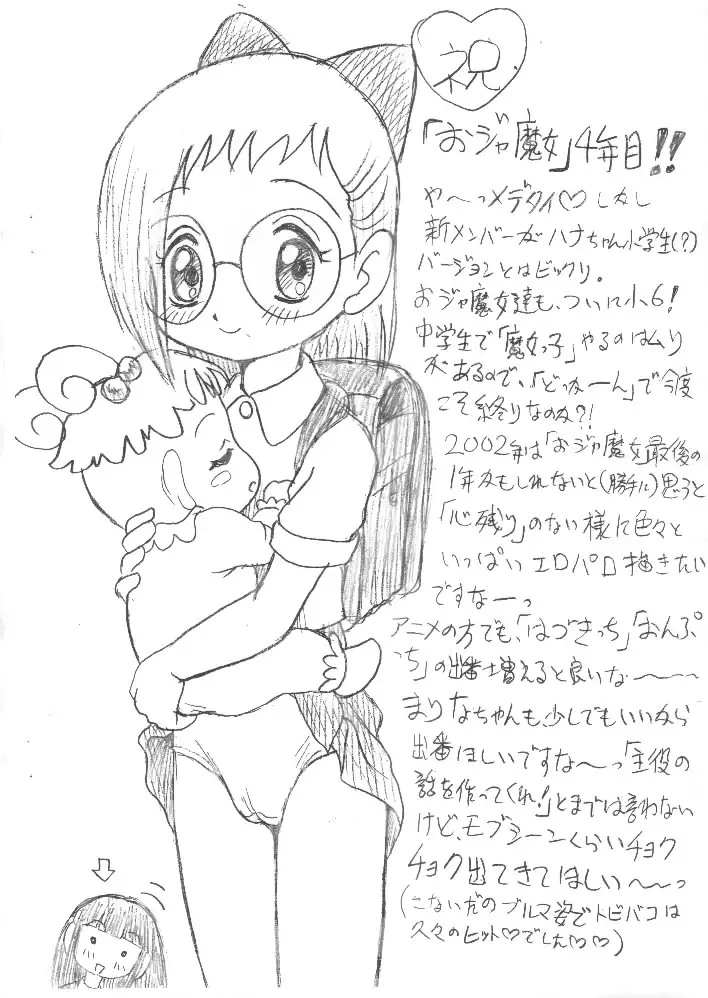 祝
「おジャ魔女」4年目!!
や〜っメデタイ♡しかし
新メンバーがハナちゃん小学生(?)
バージョンとはビックリ。
おジャ魔女達も、ついに小6!
中学生で「魔女っ子」やるのはムリ
があるので、「どっかーん」で今度
こそ終りなのか?!
2002年は「おジャ魔女」最後の
1年かもしれないと(勝手に)思うと
「心残り」のない様に色々と
いっぱいエロパロ描きたい
ですなーっ
アニメの方でも、「はづきっち」「おんぷ
っち」の出番増えると良いな〜〜〜
まりなちゃんも、少しでもいいから
出番ほしいですな〜っ「主役の
話を作ってくれ!」とまでは言わない
けど、モブシーンくらいチョク
チョク出てきてほしい〜〜っ
(こないだのブルマ姿でトビバコは
久々のヒット♡でした♡♡)